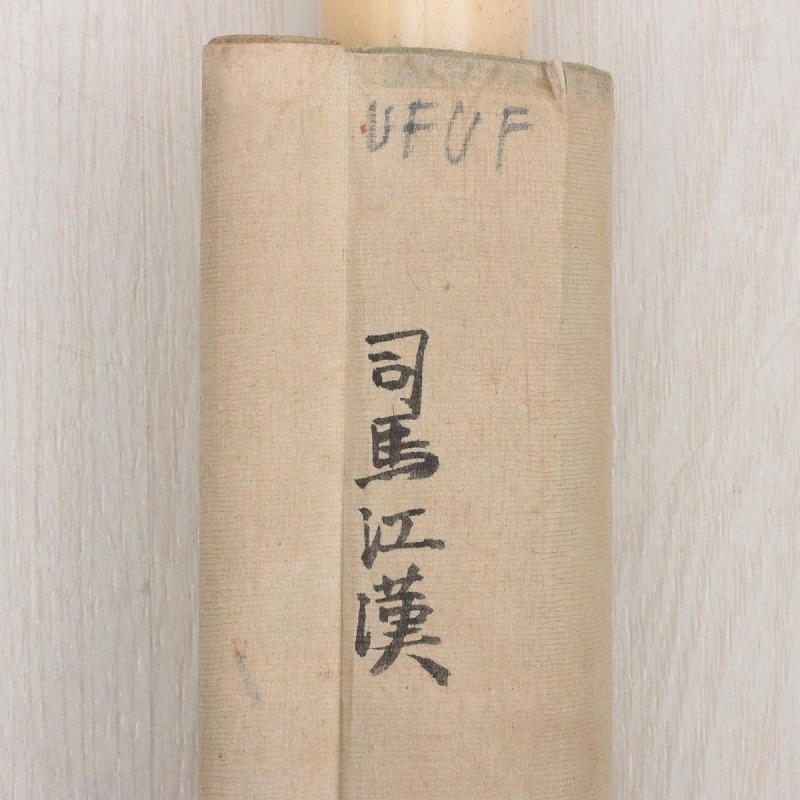 UFUF
司馬江漢